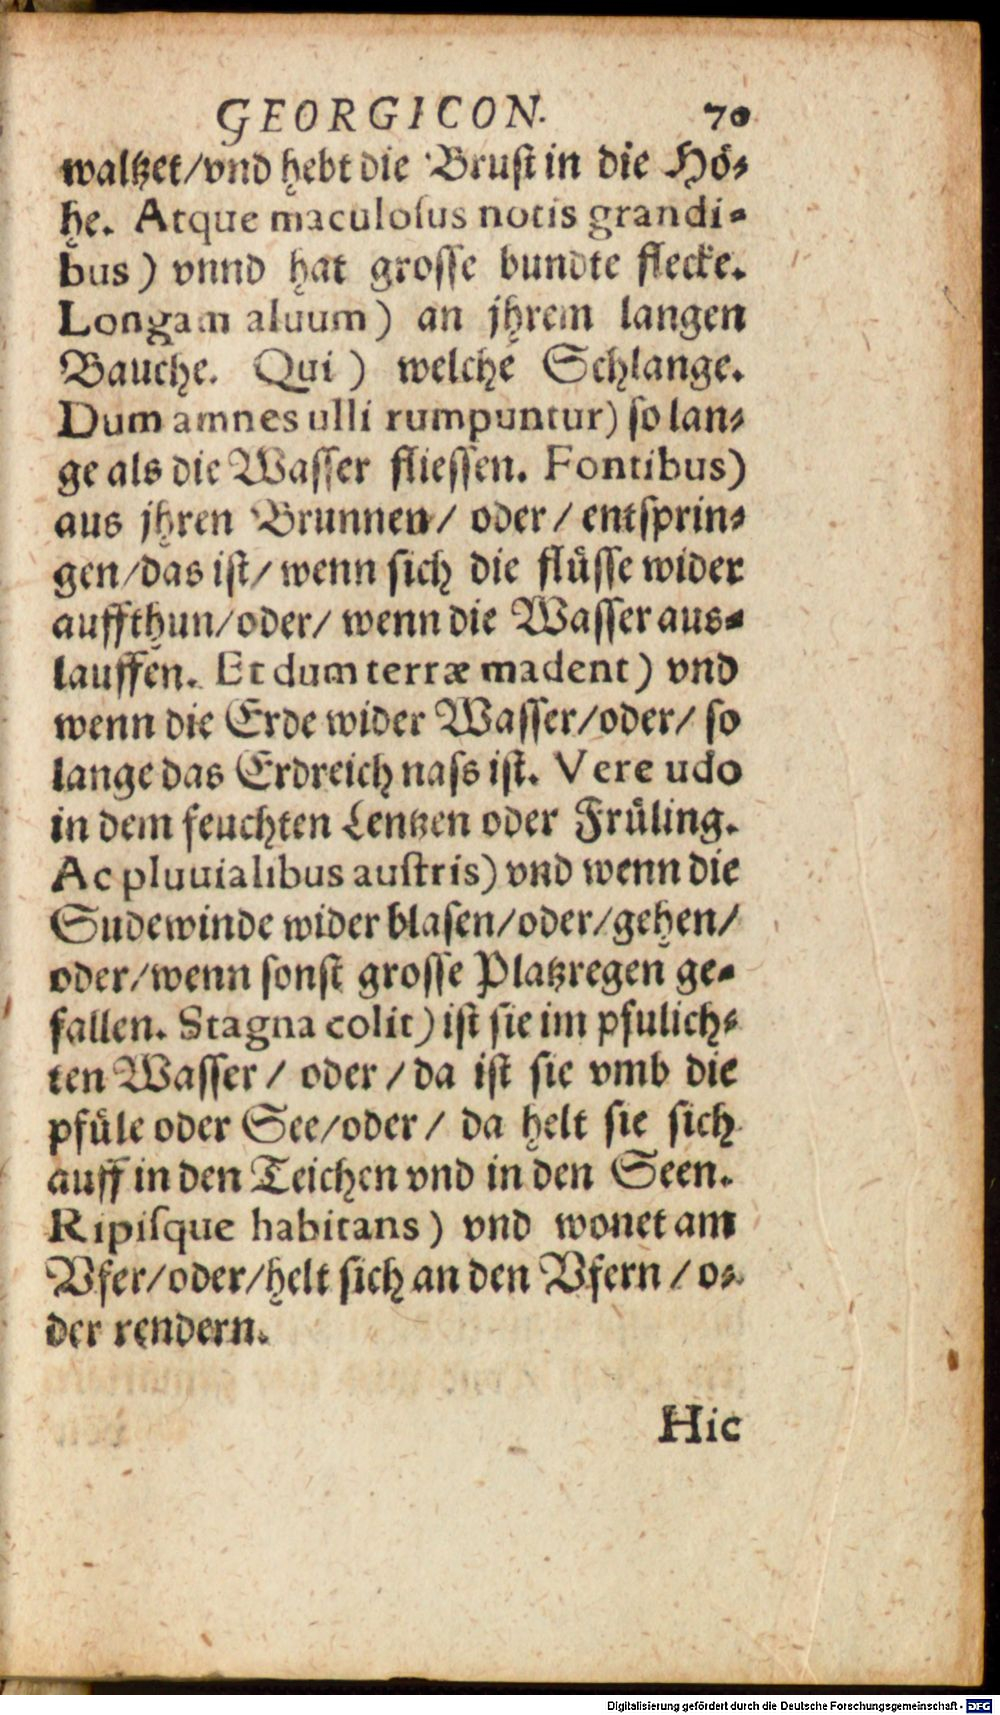 GEORGICON. 70
waltzet/vnd hebt die Brust in die Hö-
he. Atque maculosus notis grandi-
bus) vnnd hat grosse bundte flecke.
Longam aluum) an jhrem langen
Bauche. Qui) welche Schlange.
Dum amnes ulli rumpuntur) so lan-
ge als die Wasser fliessen. Fontibus)
aus jhren Brunnen/ oder/ entsprin-
gen/das ist/ wenn sich die flüsse wider
auffthun/oder/ wenn die Wasser aus-
lauffen. Et dum terræ madent) vnd
wenn die Erde wider Wasser/oder/ so
lange das Erdreich nass ist. Vere udo
in dem feuchten Lentzen oder Früling.
Ac pluuialibus austris) vnd wenn die
Sudewinde wider blasen/oder/gehen/
oder/wenn sonst grosse Platzregen ge-
fallen. Stagna colit) ist sie im pfulich-
ten Wasser/ oder/da ist sie vmb die
pfüle oder See/oder/ da helt sie sich
auff in den Teichen vnd in den Seen.
Ripisque habitans) vnd wonet am
Vfer/oder/helt sich an den Vfern/ o-
der rendern.
Hic
Digitalisierung gefördert durch die Deutsche Forschungsgemeinschaft - DFG